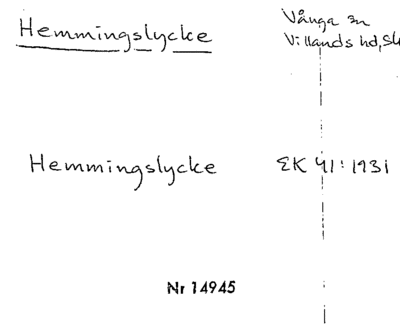 Hemmingslycke
Vånga sn
Villands hd, Sk
Hemmingslycke
EK 41:1931
Nr 14945